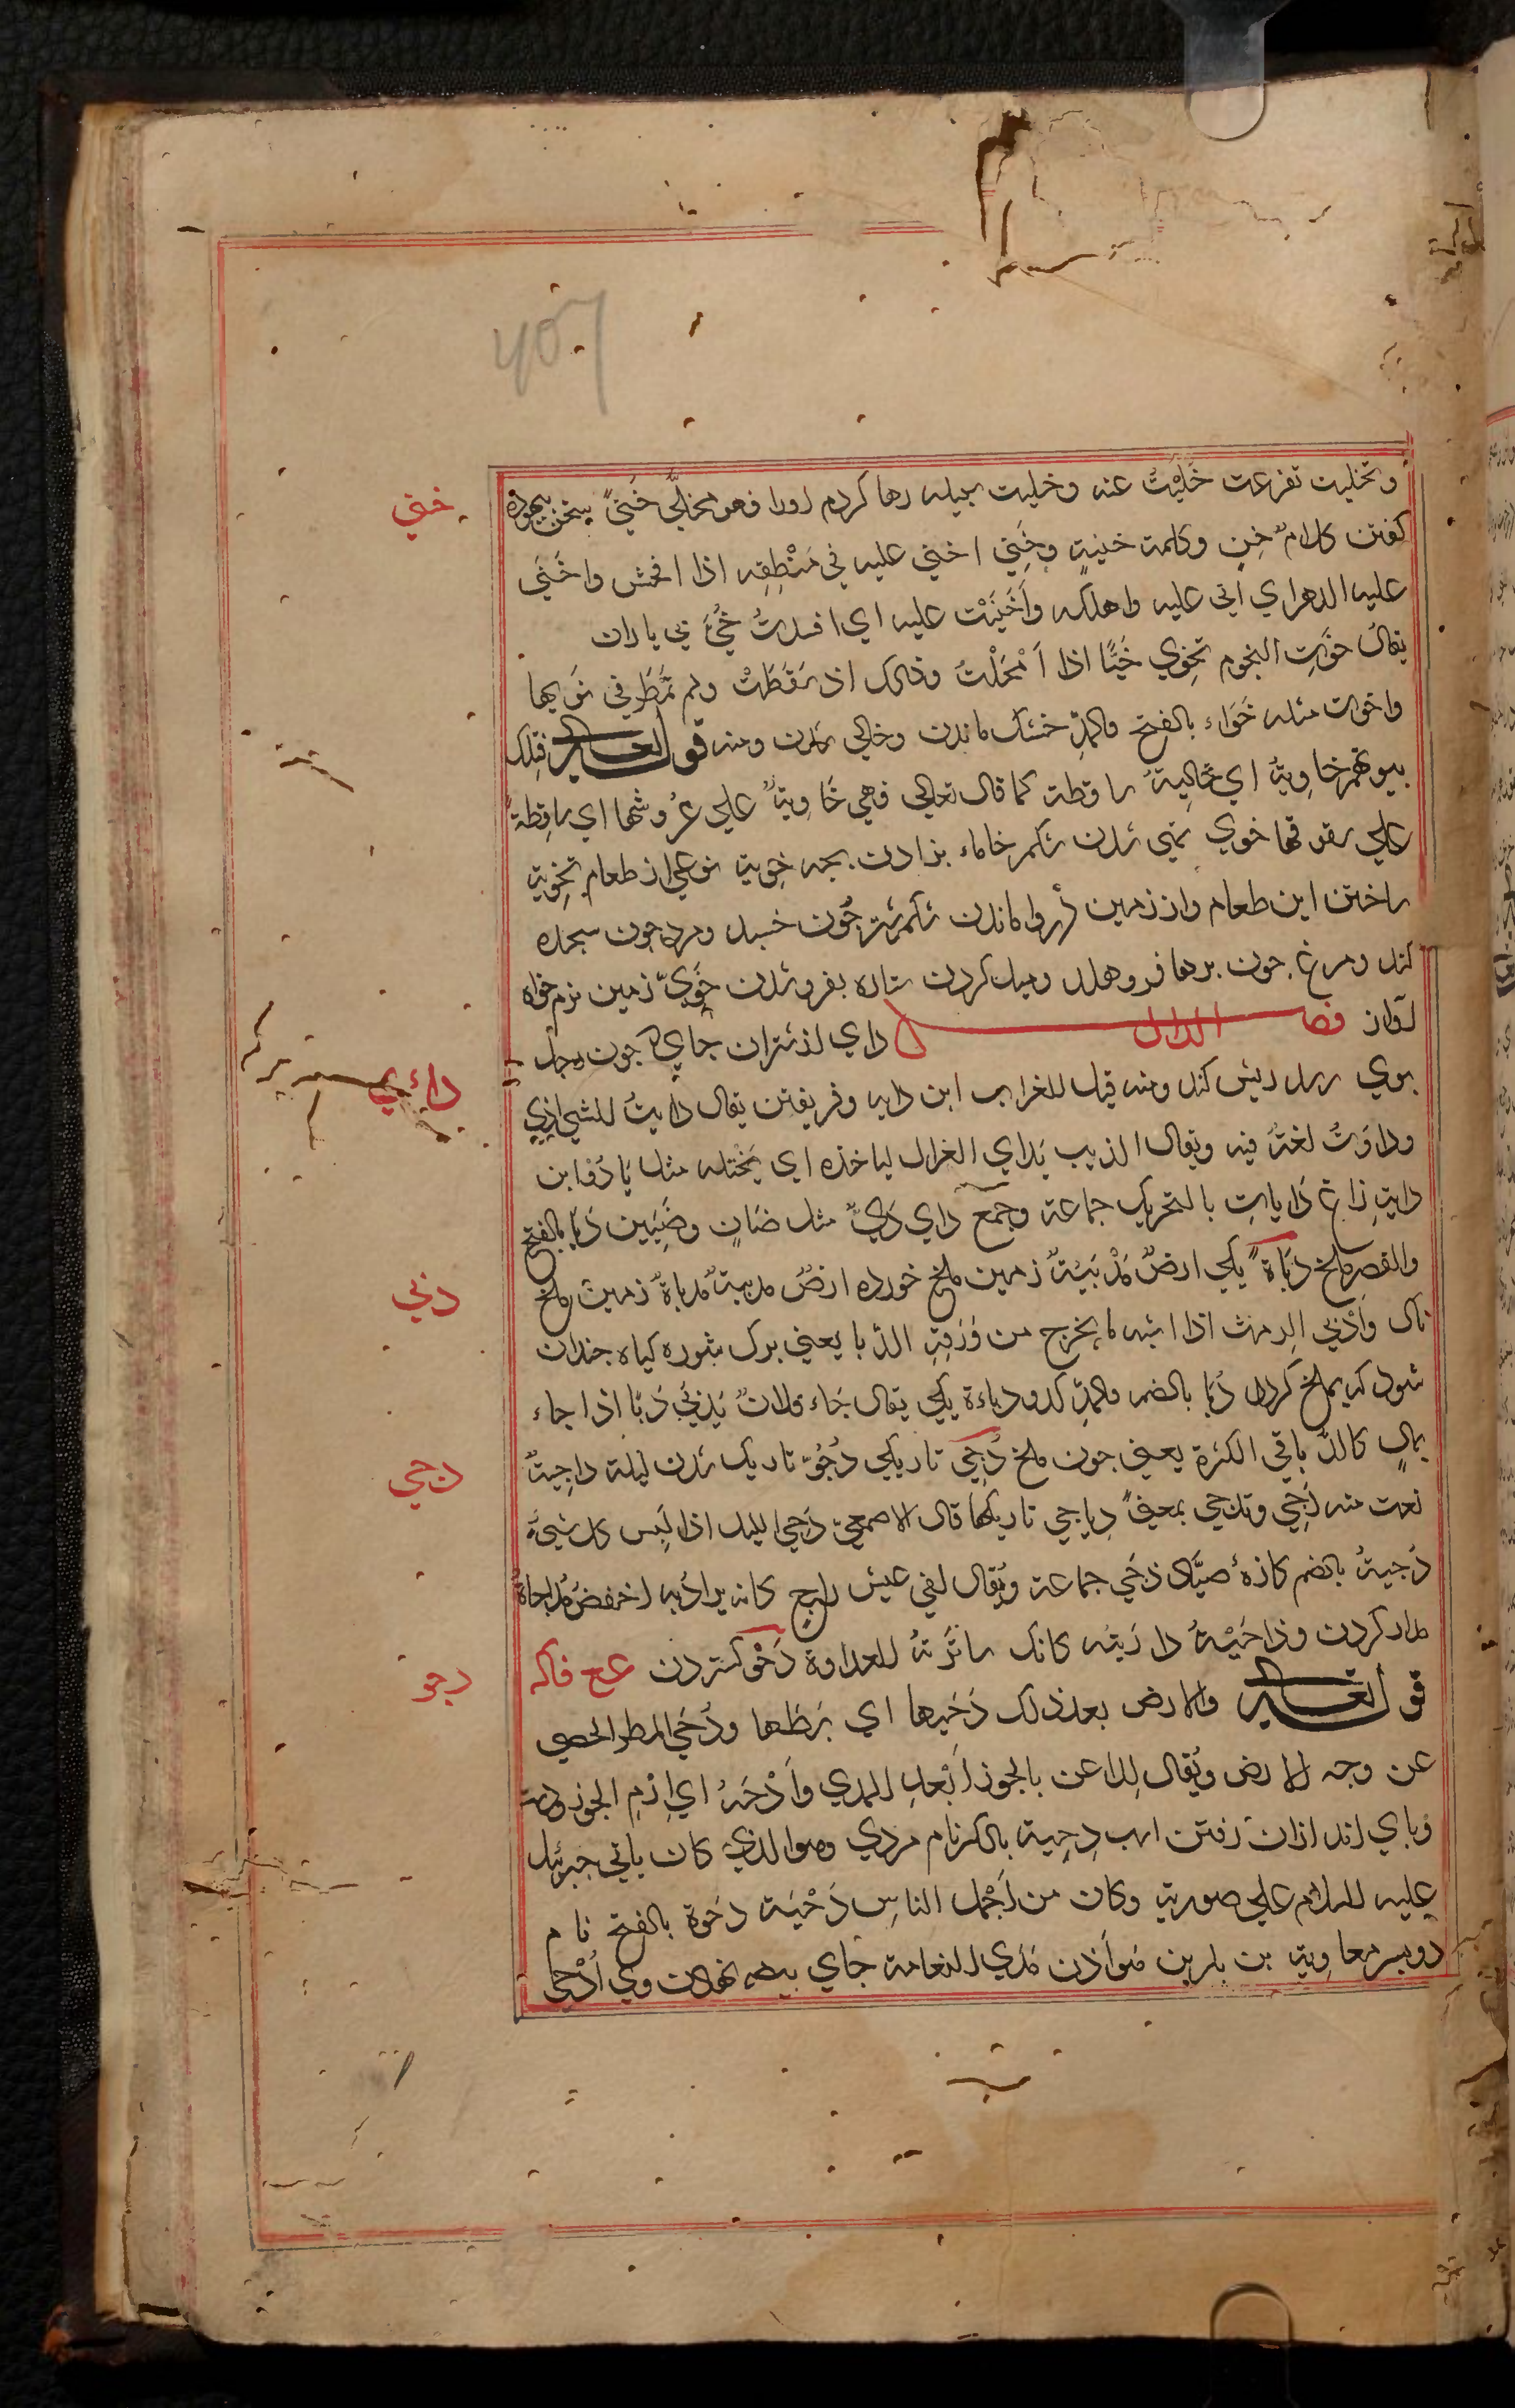 وتخليت تفرعت خَلَّيْتُ عنه وخليت سبيله رها كردم اورا فهو مخلّي خَنيً سخن بيهوده
خني
كفتن كلامٌ خنٍ وكلمة خنيةٍ وخَنِي اخني عليه في مَنْطِقِه اذا افحش واخْنَي
عليه الدهر اي اتي عليه واهلكه وأَخْنَيْت عليه اي افسدتُ خُيَّ بي باران
يقال خوَتِ النجوم تخوي خَيًّا اذا اَمْحَلَتْ وذلك اذ سَقَطَتْ ولم تمطَر في نَوَيها
واخوت مثله خَوَاء بالفتح والمدِّ خشك ماندن وخالي شدن ومنه قوله تعالى فتلك
بيوتهم خاوِيةً اي خَالِيَةً ساقطة كما قال تعالى فهي خَاوِيةٌ علي عُرُوشها اي ساقِطةٌ
علي سقوفها خوي تهي شدن شكم خاماء بزادن بچه خوية نوعي از طعام تخوية
ساختن اين طعام واززمين اروا ماندن شكم شتر چون خسبد ومرد چون سجده
كند ومرغ چون پرها فروهلد وميل كردن ستاره بفروشدن خَوِيّ زمين نرم خواه
آواز فصل الدال داي از شتران جاي كه چون رحل
دائي
بوي رسد ريش كند ومنه قيل للغراب ابن دايه وفريفتن يقال دايتُ للشي اذيٖ
وداوَتُ لغةٌ فيه ويقال الذيب يَداي الغزال لياخذه اي يَخْتله مثل يَادُوا بن
دايةِ زاغ دَايات بالتحريك جماعة وجمع داي دَئِيٌّ مثل ضَانٍ وضَئِين دَبَا بالفتح
والقصر ملخ دَبَاةً يكي ارضٌ مَدْبَيَةٌ زمين ملخ خورده ارضٌ مدبية مدباةٌ زمين ملخ
دبي
ناك وأَدْبَي الرمث اذا اشبه ما يخرج من وَرَقِهِ الدَّبا يعني برك شوره كياه چندان
شود كه بملخ كردد دُبا بالضم والمدِّ كدو دباءة يكي يقال جَاء فلانٌ بَدَبَي دَبَا اذا جاء
بمالٍ كالدّبا في الكثرة يعني چون ملخ دُجَي تاريكي دُجُوّ تاريك شدن ليلة داجيةٌ
دجي
نعت منه دَجَي وتدجي بمعنيً دياجي تاريكها قال الاصمعيّ دَجَي الليل اذا لَبِس كل شيءٍ
دُجيةُ بالضم كازهٔ صيّاد دُجَي جماعة ويُقال لفي عيش داجٍ كانه يراد به اخفضٌ مداجاة
مدارا كردن وذا حَيْيَةُ دارَيتُه كانك ساتَرتهُ للعداوة دَحْو كستردن ع ع فاله
دحو
قوله تعالى والارض بعد ذلك دَحَيها اي بَسَطَها ودَحَي المطر الحصي
عن وجه الارض ويُقال لِلاعب بالجوز اَبْعِدِ المدي وأَدْحُه اي اِرْمِ الجوز ودست
وپاي انداختن رفتن اسب دِحِية بالكسر نام مردي وهو الذي كان ياتي جبرئيل
عليه السلام علي صورته وكان من أَجْمل الناسِ دَحْيَة دَحْوة بالفتح نام
دو پسر معاوية بن بكر بن هَوَازن مَدْحَي للنعامة جاي بيضه نهادن وي أُدْحِيّ